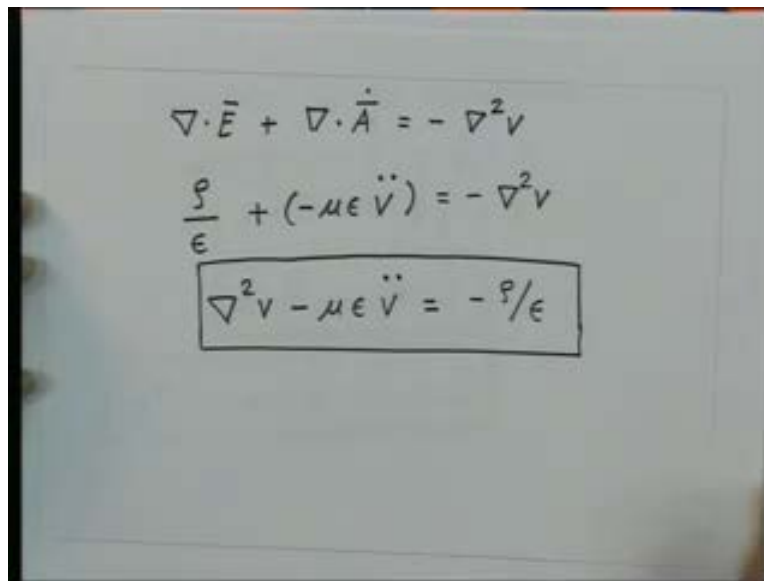 ∇·Ē + ∇·Ā̇ = - ∇²V
ρ/ϵ + (-μϵ V̈) = - ∇²V
∇²V - μϵ V̈ = - ρ/ϵ